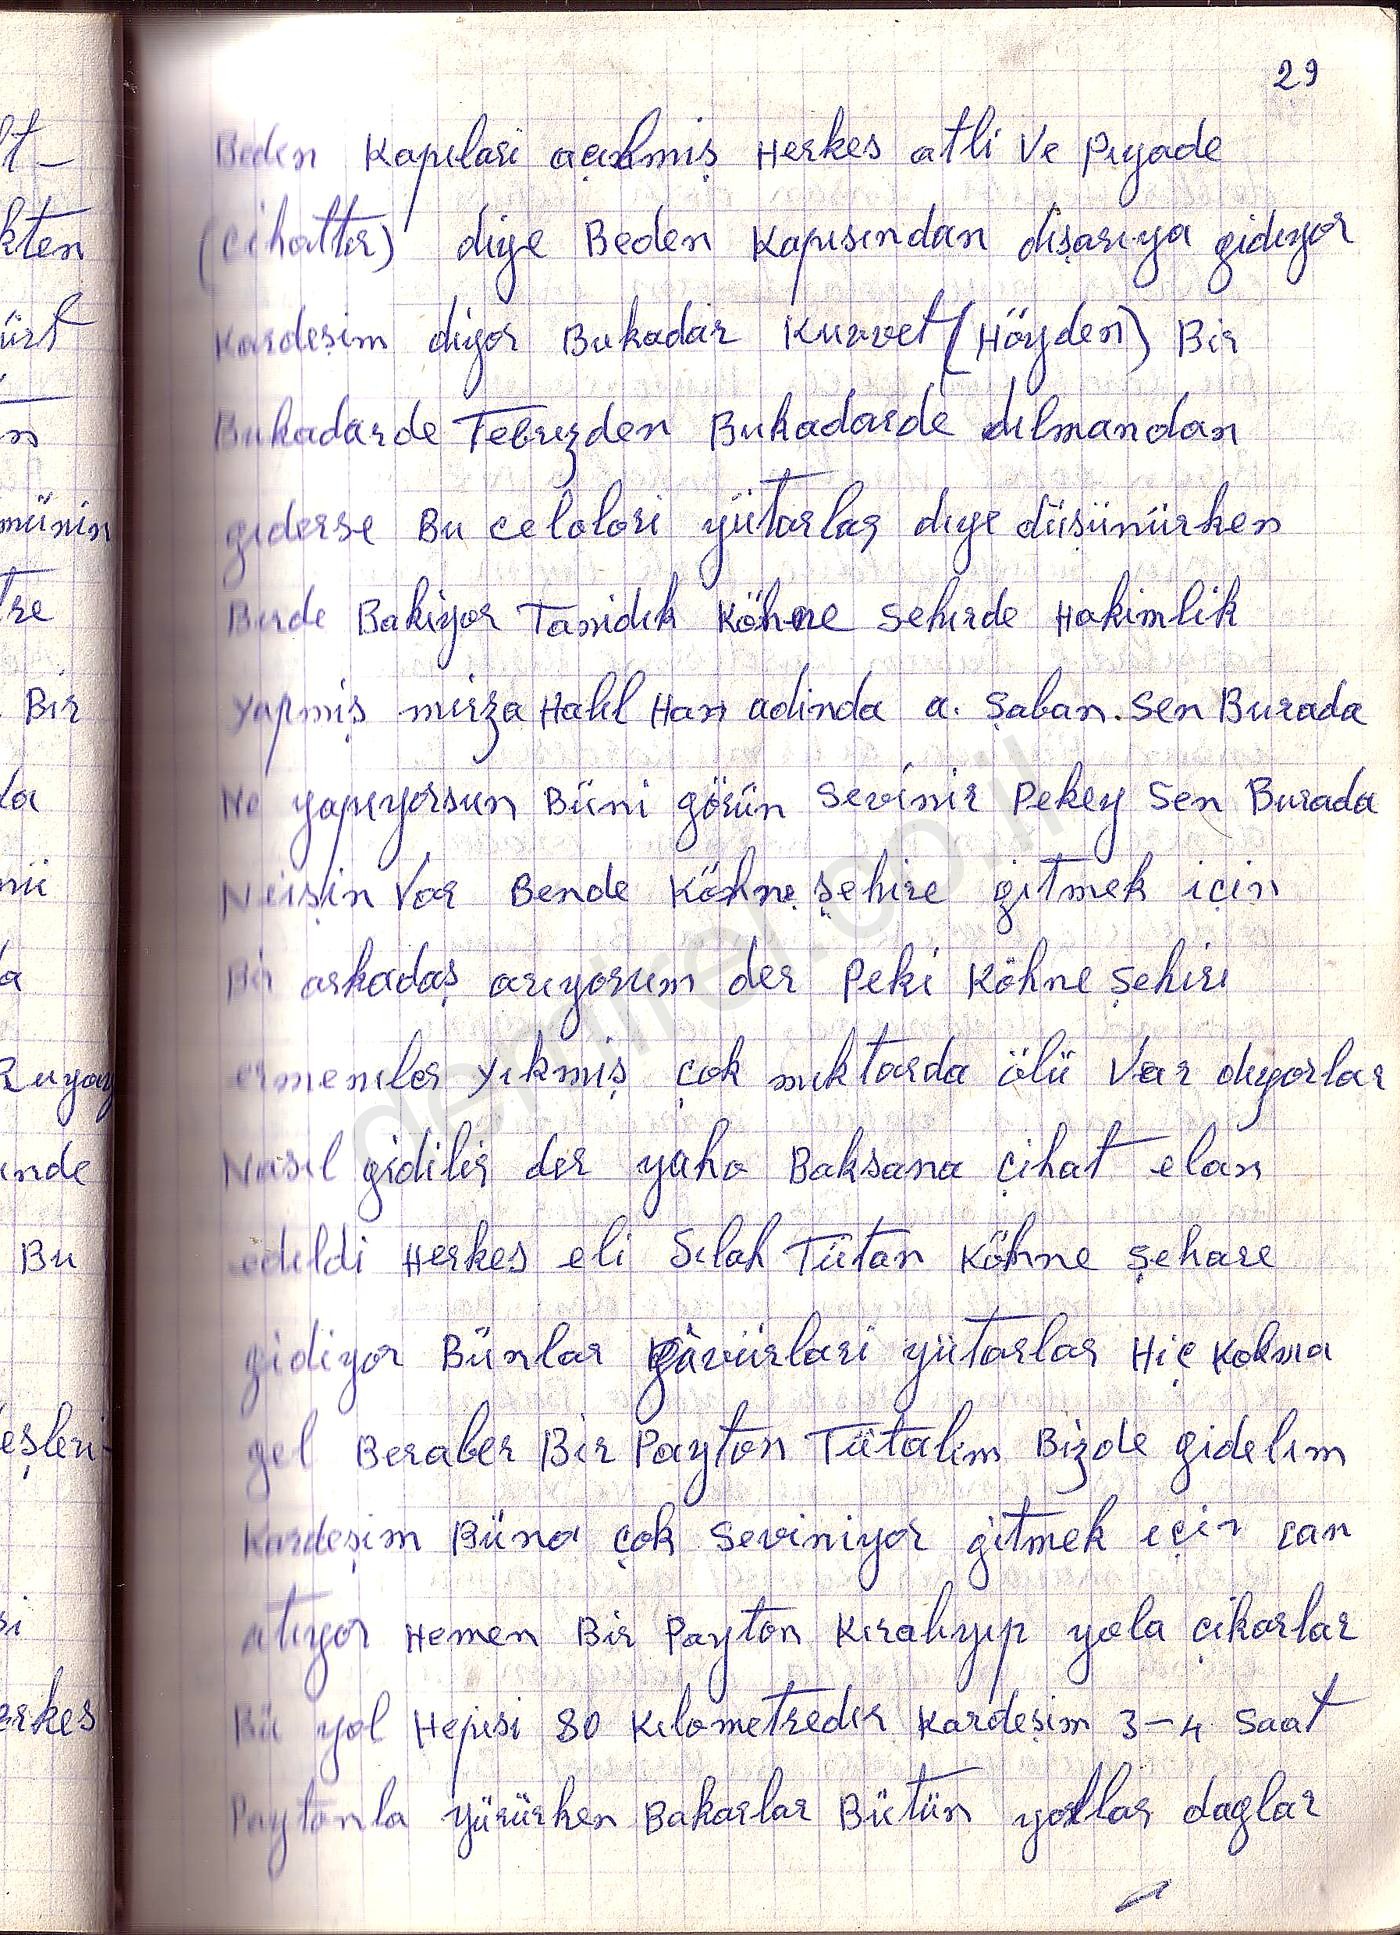 29
Beden Kapılari açılmiş Herkes atli Ve Pıyade
(cihattır) diye Beden Kapısından dışarıya gidıyor
Kardeşim diyor Bukadar Kuvvet (Höyden) Bir
Bukadarde Tebrızden Bukadarde dılmandan
gıderse Bu celolori yütarlar dıye düşünürken
Birde Bakiyor Tanidık Köhne Sehırde Hakimlik
yapmiş mirza Halıl Han adinda a. Şaban. Sen Burada
Ne yapıyorsun Büni görün Sevinir Pekey Sen Burada
Neişin Var Bende Köhne şehire gıtmek için
Bir arkadaş arıyorum der Peki Köhne Şehiri
ermenıler yıkmiş çok mıktarda ölü Var dıyorlar
Nasıl gidilir der yaho Baksana çihat elan
edıldi Herkes eli Sılah Tütan Köhne şehare
gidiyor Bünlar gâvürlari yütarlar Hiç Kokma
gel Beraber Bir Payton Tütalım Bizde gidelım
Kardeşim Büna çok Seviniyor gitmek için can
atıyor Hemen Bir Payton Kıralıyıp yola çikarlar
Bü yol Hepisi 80 Kılometredır Kardeşim 3-4 Saat
Paytonla yürürken Bakarlar Bütün yollar daglar
lt-
kten
ürt
n
münin
tre
Bir
da
nü
da
Ruyay
inde
Bu
eşleri-
si
erkes
demirel.co.il